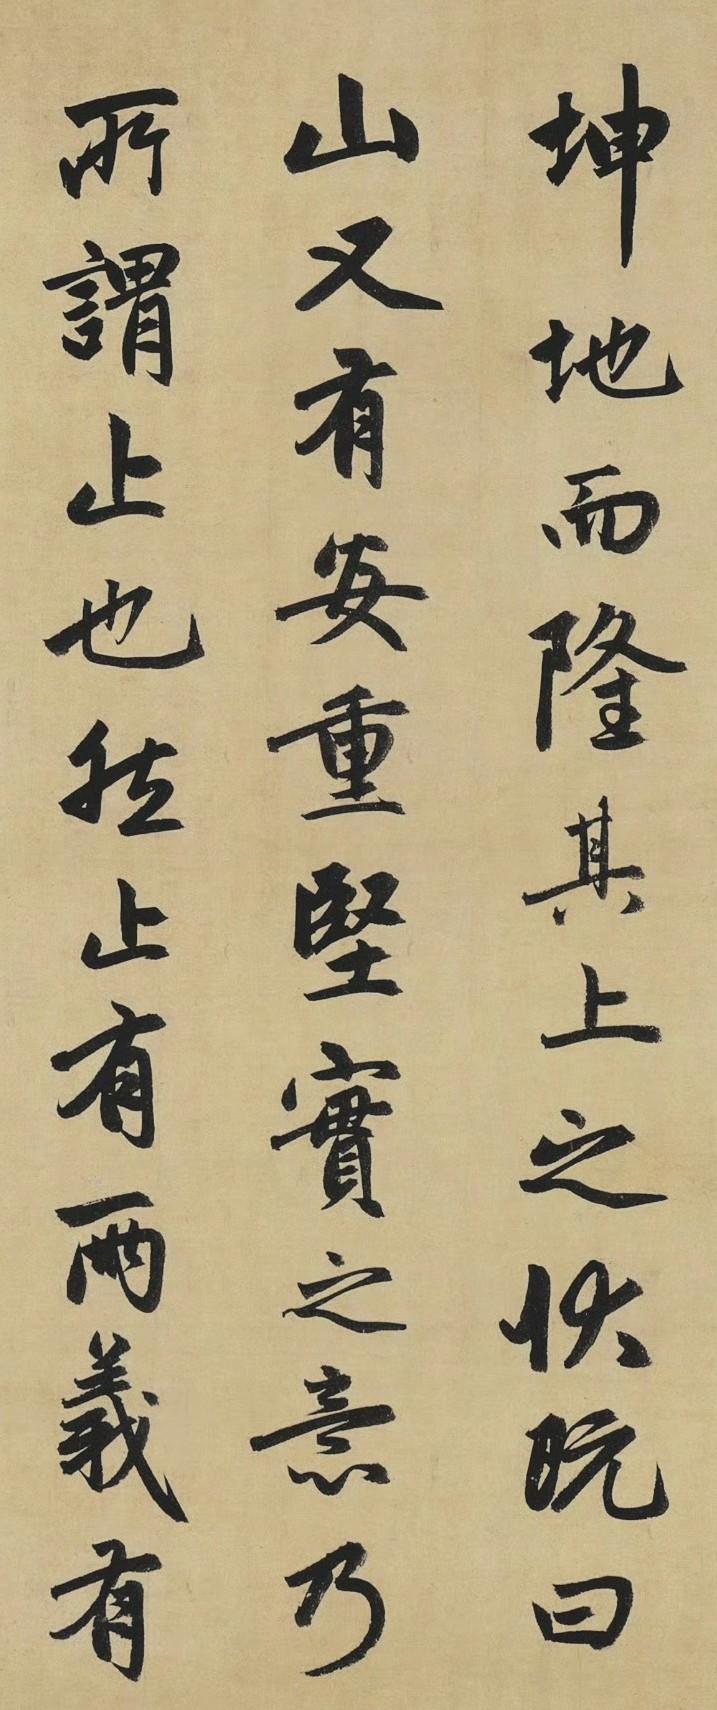 坤地而隆其上之狀既曰
山又有安重堅實之意乃
所謂止也然止有兩義有